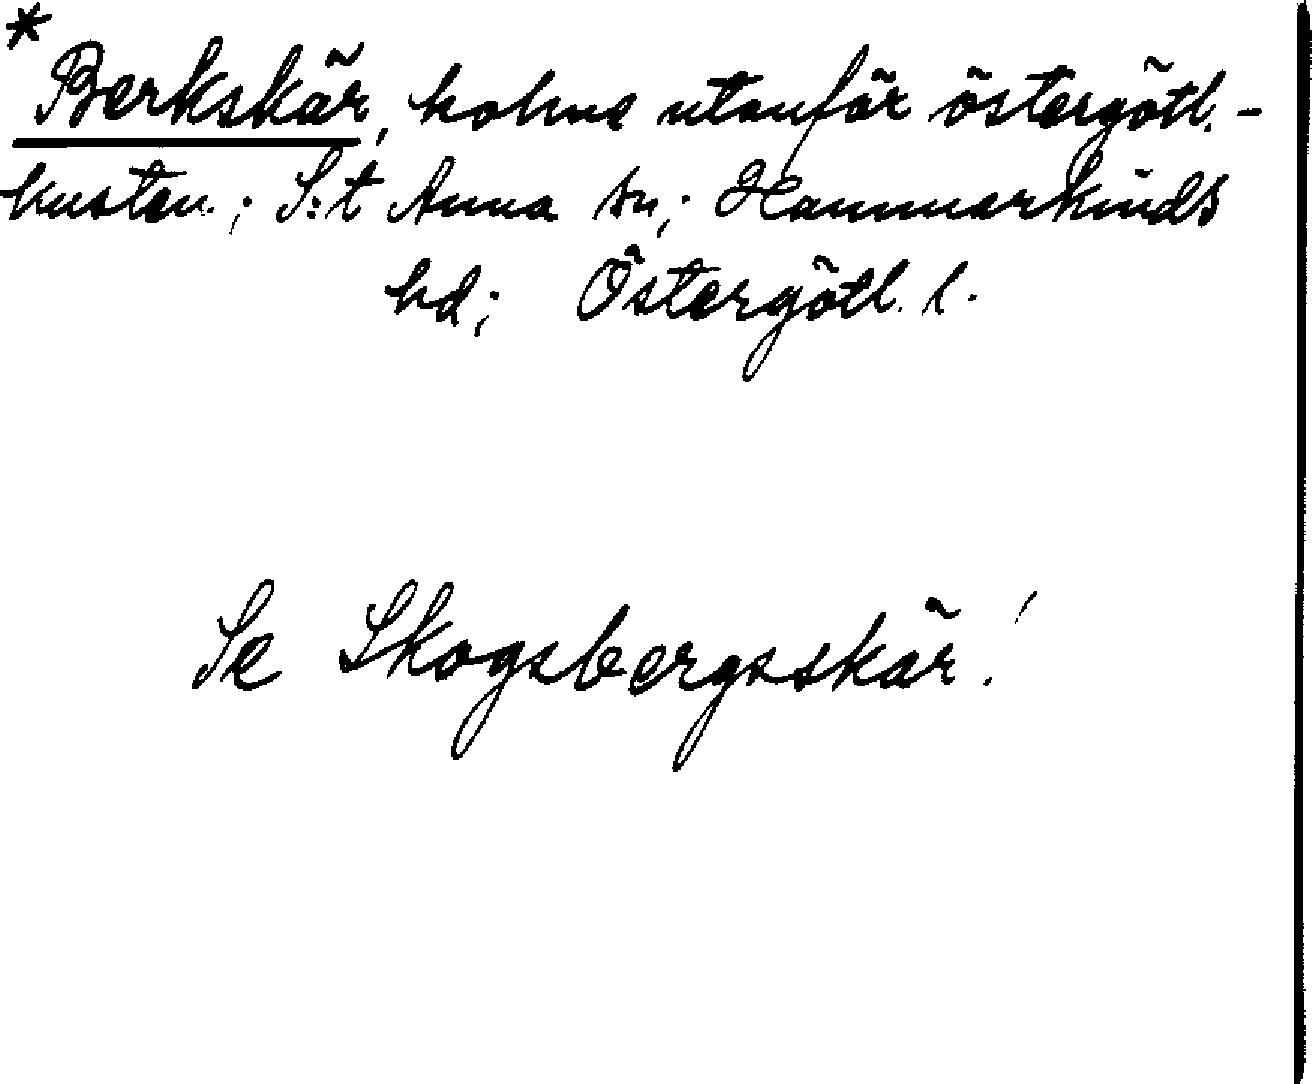 * Berkskär, holme utanför östergötl.-
kusten.; S:t Anna sn; Hammarkinds
hd; Östergötl. l.
Se Skogsbergsskär!